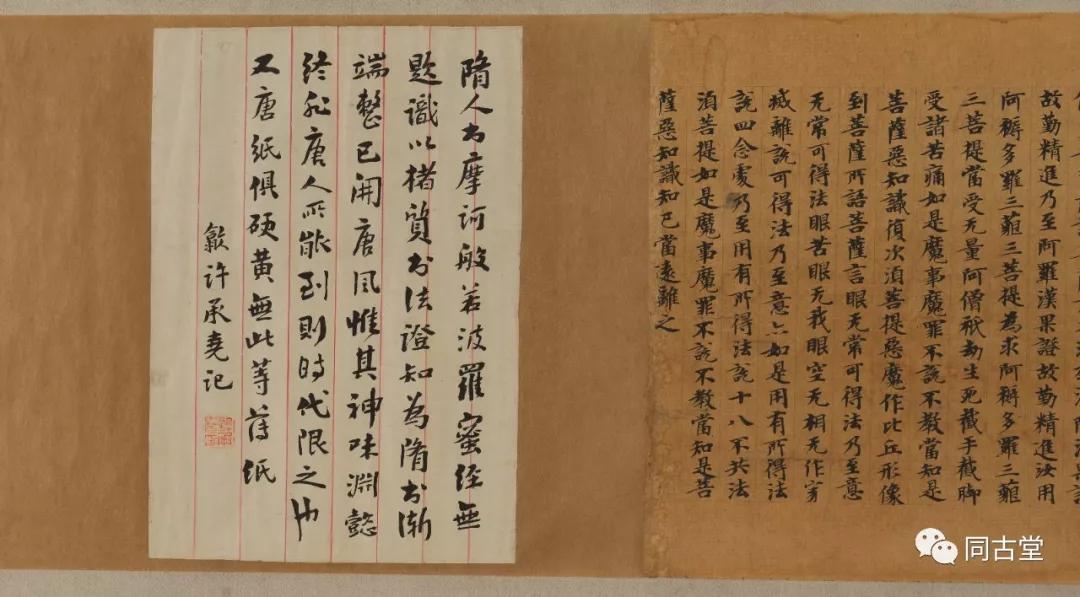 故勤精進乃至阿羅漢果證故勤精進汝用
阿耨多羅三藐三菩提為求阿耨多羅三藐
三菩提當受无量阿僧祇劫生死截手截脚
受諸苦痛如是魔事魔罪不說不教當知是
菩薩惡知識復次湏菩提惡魔作比丘形像
到菩薩所語菩薩言眼无常可得法乃至意
无常可得法眼苦眼无我眼空无相无作寂
滅離說可得法乃至意亦如是用有所得法
說四念處乃至用有所得法說十八不共法
湏菩提如是魔事魔罪不說不教當知是菩
薩惡知識知已當遠離之
隋人書摩訶般若波羅蜜經無
題識以楮質書法證知為隋書漸
端整已開唐風惟其神味淵懿
終非唐人所能到則時代限之也
又唐紙俱硬黃無此等薄紙
歙許承堯記
同古堂